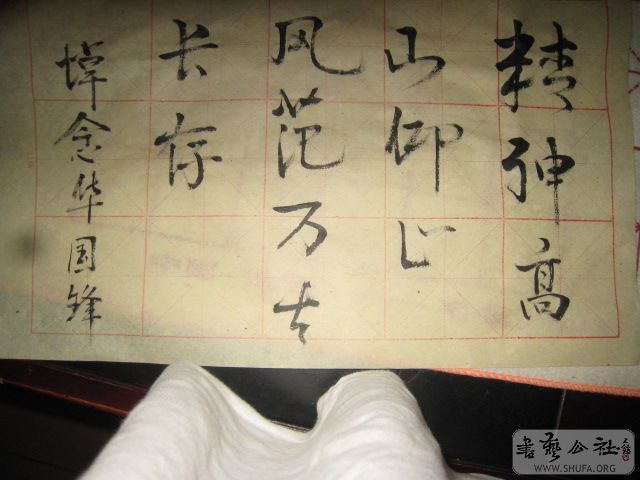 精神高
山仰止
风范万古
长存
悼念华国锋
書藝公社
WWW.SHUFA.ORG